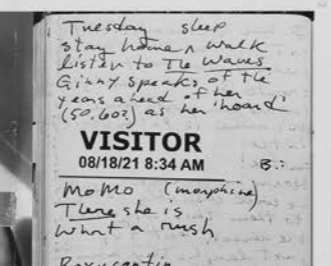 Tuesday sleep
stay home n walk
listen to The Waves
Ginny speaks of the
years ahead of her
(50, 60?) as her 'hoard'
VISITOR
08/18/21 8:34 AM
B.:
MoMo (morphine)
There she is
what a rush